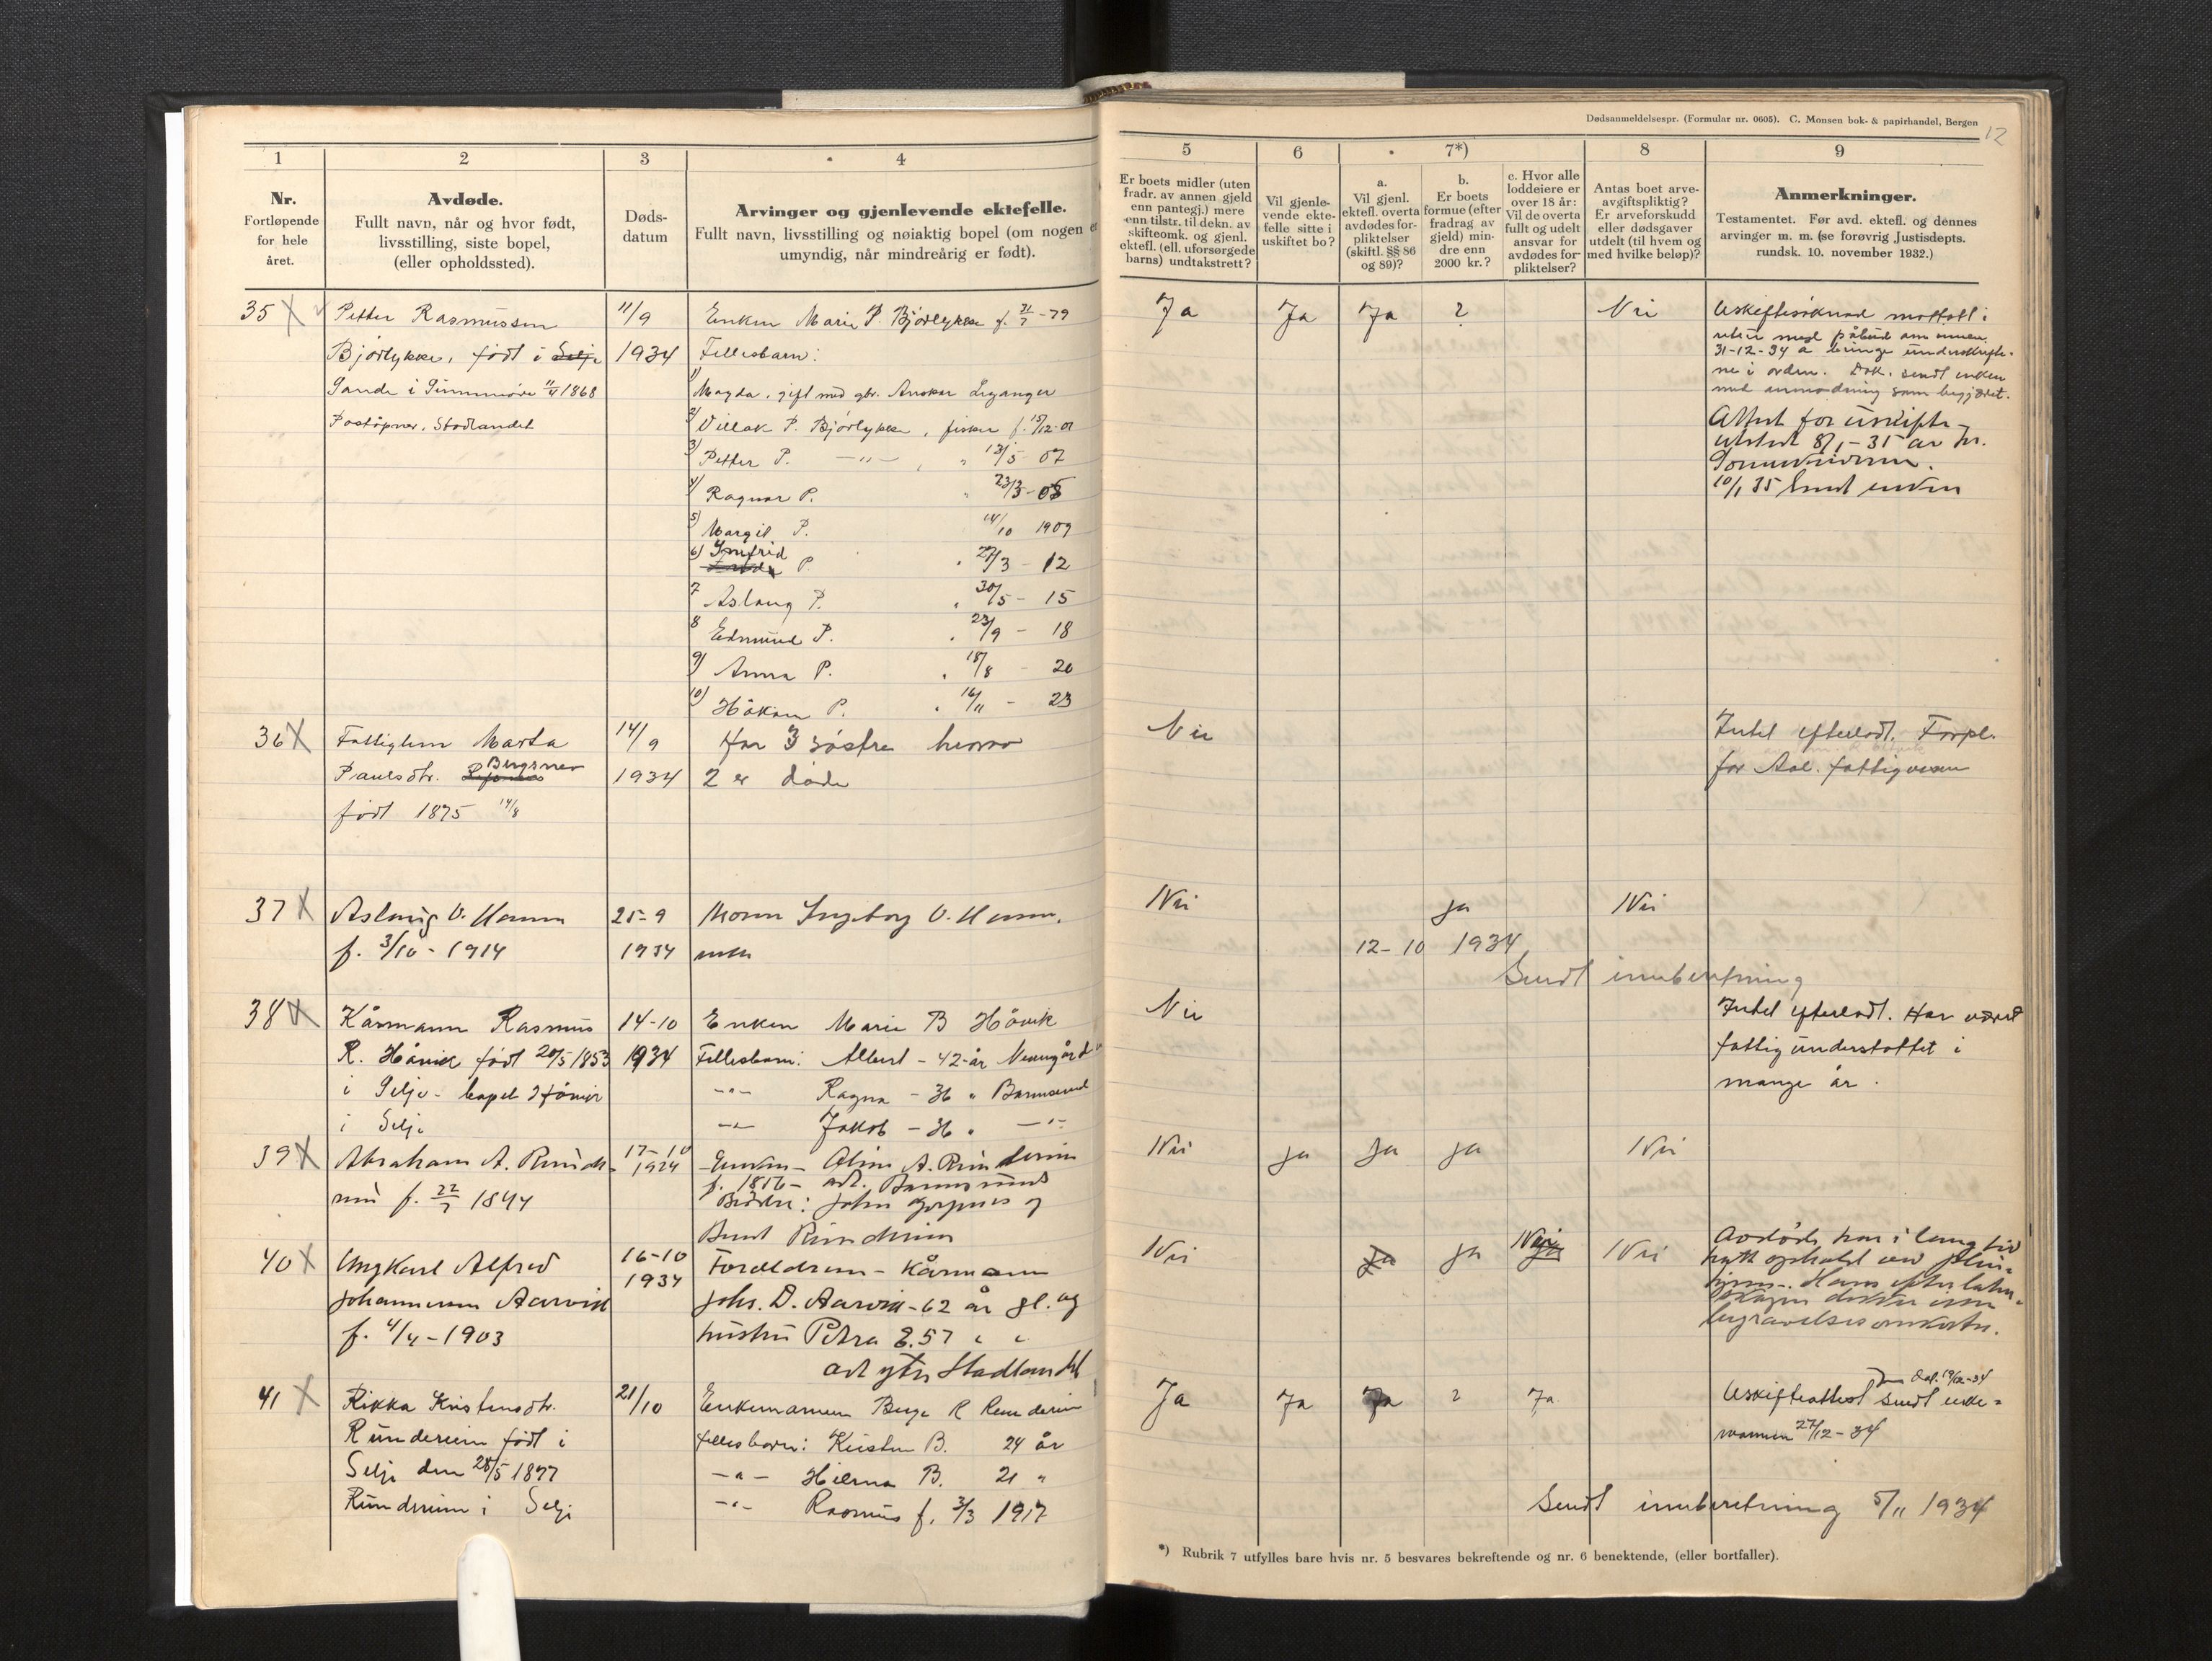 Dødsanmeldelsespr. (Formular nr. 0605). C. Monsen bok- & papirhandel, Bergen
12
1
2
3
4
Nr.
Fortløpende
for hele
året.
Avdøde.
Fullt navn, når og hvor født,
livsstilling, siste bopel,
(eller opholdssted).
Døds-
datum
Arvinger og gjenlevende ektefelle.
Fullt navn, livsstilling og nøiaktig bopel (om nogen er
umyndig, når mindreårig er født).
5
6
7*)
8
9
Er boets midler (uten
fradr. av annen gjeld
enn pantegj.) mere
enn tilstr. til dekn. av
skifteomk. og gjenl.
ektefl. (ell. uforsørgede
barns) undtakstrett?
Vil gjenle-
vende ekte-
felle sitte i
uskiftet bo?
a.
Vil gjenl.
ektefl. overta
avdødes for-
pliktelser
(skiftl. §§ 86
og 89)?
b.
Er boets
formue (efter
fradrag av
gjeld) min-
dre enn
2000 kr.?
c. Hvor alle
loddeiere er
over 18 år:
Vil de overta
fullt og udelt
ansvar for
avdødes for-
pliktelser?
Antas boet arve-
avgiftspliktig?
Er arveforskudd
eller dødsgaver
utdelt (til hvem og
med hvilke beløp)?
Anmerkninger.
Testamentet. Før avd. ektefl. og dennes
arvinger m. m. (se forøvrig Justisdepts.
rundsk. 10. november 1932.)
35
Petter Rasmussen
Bjørlykke, født i Selje
Sande i Sunnmøre 11/4 1868
Postopner, Stadlandet
11/9
1934
Enken Marie P. Bjørlykke f. 31/7 -79
Fellesbarn:
1) Magda, gift med gbr. Anskar Leganger
2) Villak P. Bjørlykke, fisker f. 15/12-01
3) Petter P. -"- , " 13/5 07
4) Ragnar P. " 23/3-05
5) Margit P. 14/10 1909
6) Smfrid P. " 27/3 - 12
7 Aslaug P. " 30/5 - 15
8 Edmund P. " 23/9 - 18
9) Anna P. " 18/8 - 20
10) Håkon P. " 16/11 - 23
Ja
Ja
Ja
?
Nei
Uskiftesøknad mottatt i
retur med påbud om innen
31-12-34 å bringe underskrifte-
ne i orden. Dok. sendt enken
med anmodning som begjæret.
Attest for uskifte
utstedt 8/1-35 av hr.
Sorenskriveren.
10/1 35 Sendt enken
36
Fattiglem Marta
Paulsdtr. Bergsnev
født 1875 14/8
14/9
1934
Har 3 søstre hvorav
2 er døde
Nei
Intet efterladt. Forpl.
for Aal. fattigvesen
37
Aslaug O. Hamn
f. 3/10 - 1914
25-9
1934
Moren Ingeborg O. Hamn,
enke
Nei
ja
Nei
12-10 1934
Sendt innberetning
38
Kårmann Rasmus
R. Håvik født 20/5 1853
i Selje - bopel
i Selje
14-10
1934
Enken Marie B Håvik
Fellesbarn: Albert - 42 år
-"- Ragna - 36 " Barmsund
-"- Jakob - 36 " -"-
Nei
Intet efterladt. Har været
fattigunderstøttet i
mange år.
39
Abraham A. Runde-
reim f. 22/7 1844
17-10
1934
Enken - Oline A. Runderein
f. 1856 - adr. Barmsund
Brødre: John og
Bernt Runderein
Nei
ja
ja
ja
Nei
40
Ungkarl Alfred
Johannesen Aarvik
f. 4/4-1903
16-10
1934
Foreldrene - Kårmann
Johs. D. Aarvik - 62 år gl. og
hustru Petra E. 57 " "
adr ytre Stadlandet
Nei
Ja
ja
Nei
Nei
Avdøde har i lang tid
hatt ophold ved pleie-
hjem. Hans efterlaten-
skaper dekker ikke
begravelsesomkostn.
41
Rikka Kristensdtr.
Runderein født i
Selje den 28/5 1877
Runderein i Selje
21/10
Enkemannen Berge R Runderein
Fellesbarn: Kristen B. 24 år
-"- Hilma B. 21 "
-"- Rasmus f. 3/3 1917
Ja
Ja
Ja
?
Ja
Uskifteattest sendt enke-
mannen 27/12-34
Sendt innberetning 5/11 1934
*) Rubrik 7 utfylles bare hvis nr. 5 besvares bekreftende og nr. 6 benektende, (eller bortfaller).